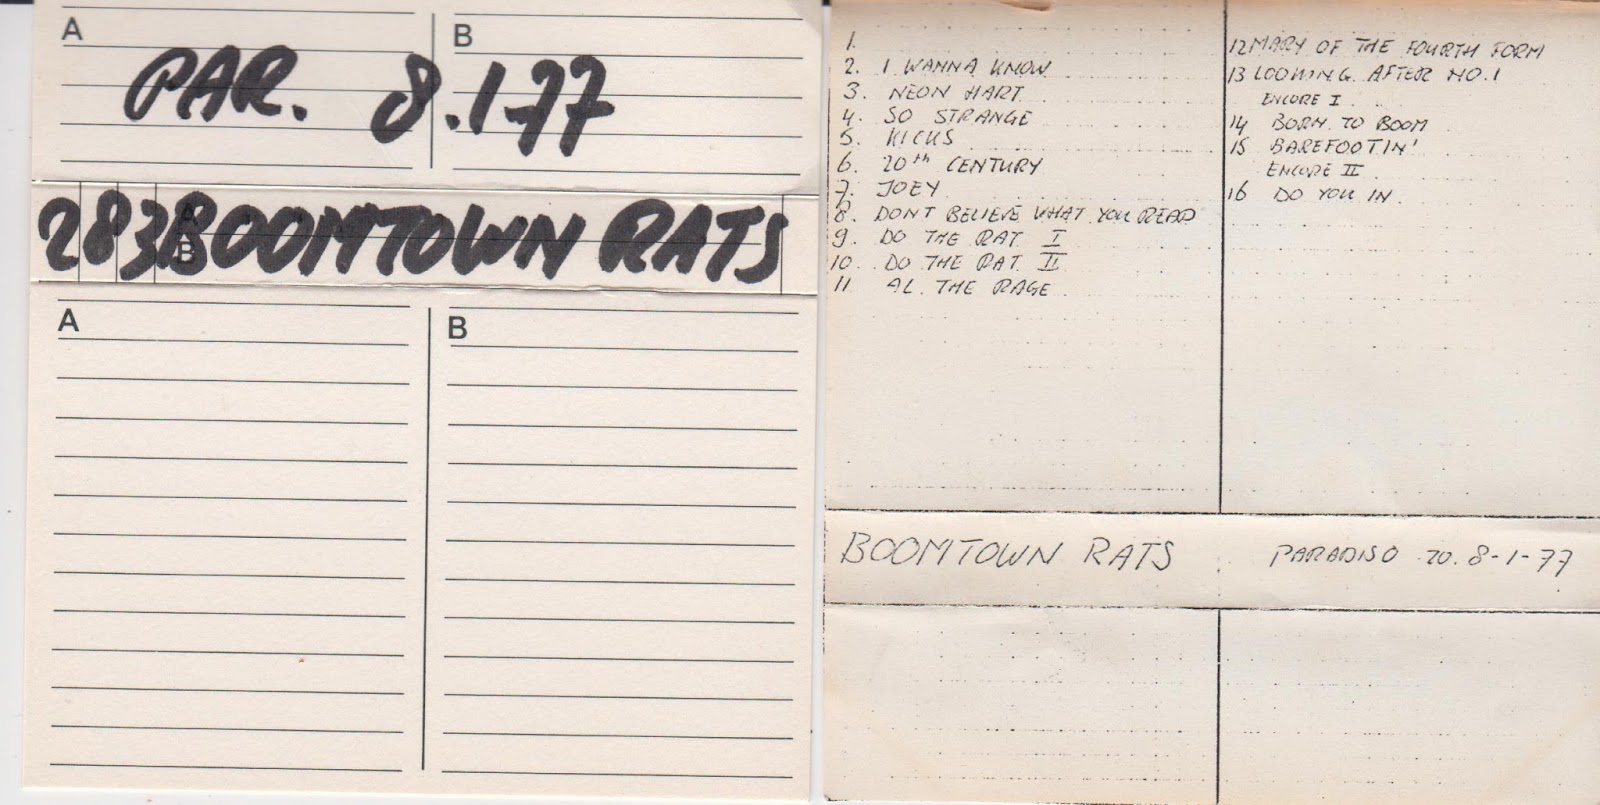 A
B
PAR. 8.1-77
283 BOOMTOWN RATS
A
B
A
B
1.
2. I WANNA KNOW
3. NEON HART
4. SO STRANGE
5. KICKS
6. 20th CENTURY
7. JOEY
8. DON'T BELIEVE WHAT YOU READ
9. DO THE RAT I
10. DO THE RAT II
11 AL. THE RAGE
12 MARY OF THE FOURTH FORM
13 LOOKING AFTER NO.1
ENCORE I
14 BORN TO BOOM
15 BAREFOOTIN'
ENCORE II
16 DO YOU IN
BOOMTOWN RATS PARADISO 20. 8-1-77